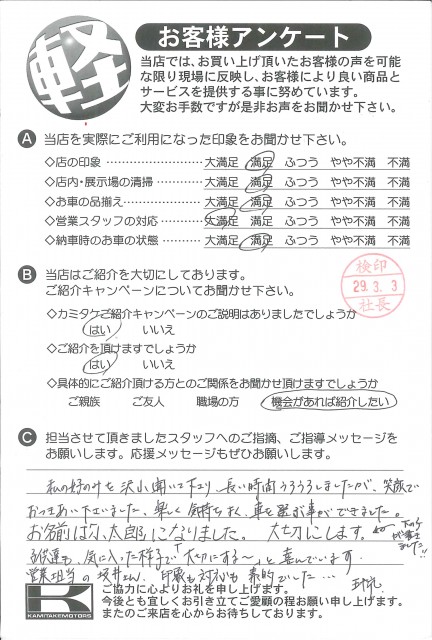 軽
お客様アンケート
当店では、お買い上げ頂いたお客様の声を可能
な限り現場に反映し、お客様により良い商品と
サービスを提供する事に努めています。
大変お手数ですが是非お声をお聞かせ下さい。
A 当店を実際にご利用になった印象をお聞かせ下さい。
◇店の印象 大満足 満足 ふつう やや不満 不満
◇店内・展示場の清掃 大満足 満足 ふつう やや不満 不満
◇お車の品揃え 大満足 満足 ふつう やや不満 不満
◇営業スタッフの対応 大満足 満足 ふつう やや不満 不満
◇納車時のお車の状態 大満足 満足 ふつう やや不満 不満
B 当店はご紹介を大切にしております。
ご紹介キャンペーンについてお聞かせ下さい。
検印
29.3.3
社長
◇カミタケご紹介キャンペーンのご説明はありましたでしょうか
はい いいえ
◇ご紹介を頂けますでしょうか
はい いいえ
◇具体的にご紹介頂ける方とのご関係をお聞かせ頂けますでしょうか
ご親族 ご友人 職場の方 機会があれば紹介したい
C 担当させて頂きましたスタッフへのご指摘、ご指導メッセージを
お願いします。応援メッセージもぜひお願いします。
私の好のみを沢山聞いて下さり、長い時間うろうろしましたが、笑顔で
おつきあい下さいました、楽しく気持ちよく、車を選ぶ事ができました。
お名前は小太郎になりました。大切にします。
子供達も、気に入った様子で「大切にする～」と喜んでいます。
営業担当の坂井さん、印象も対応も素的でした…
K
KAMITAKEMOTORS
ご協力に心よりお礼を申し上げます。
今後とも宜しくお引き立てご愛顧の程お願い申し上げます。
またのご来店を心からお待ちしております。